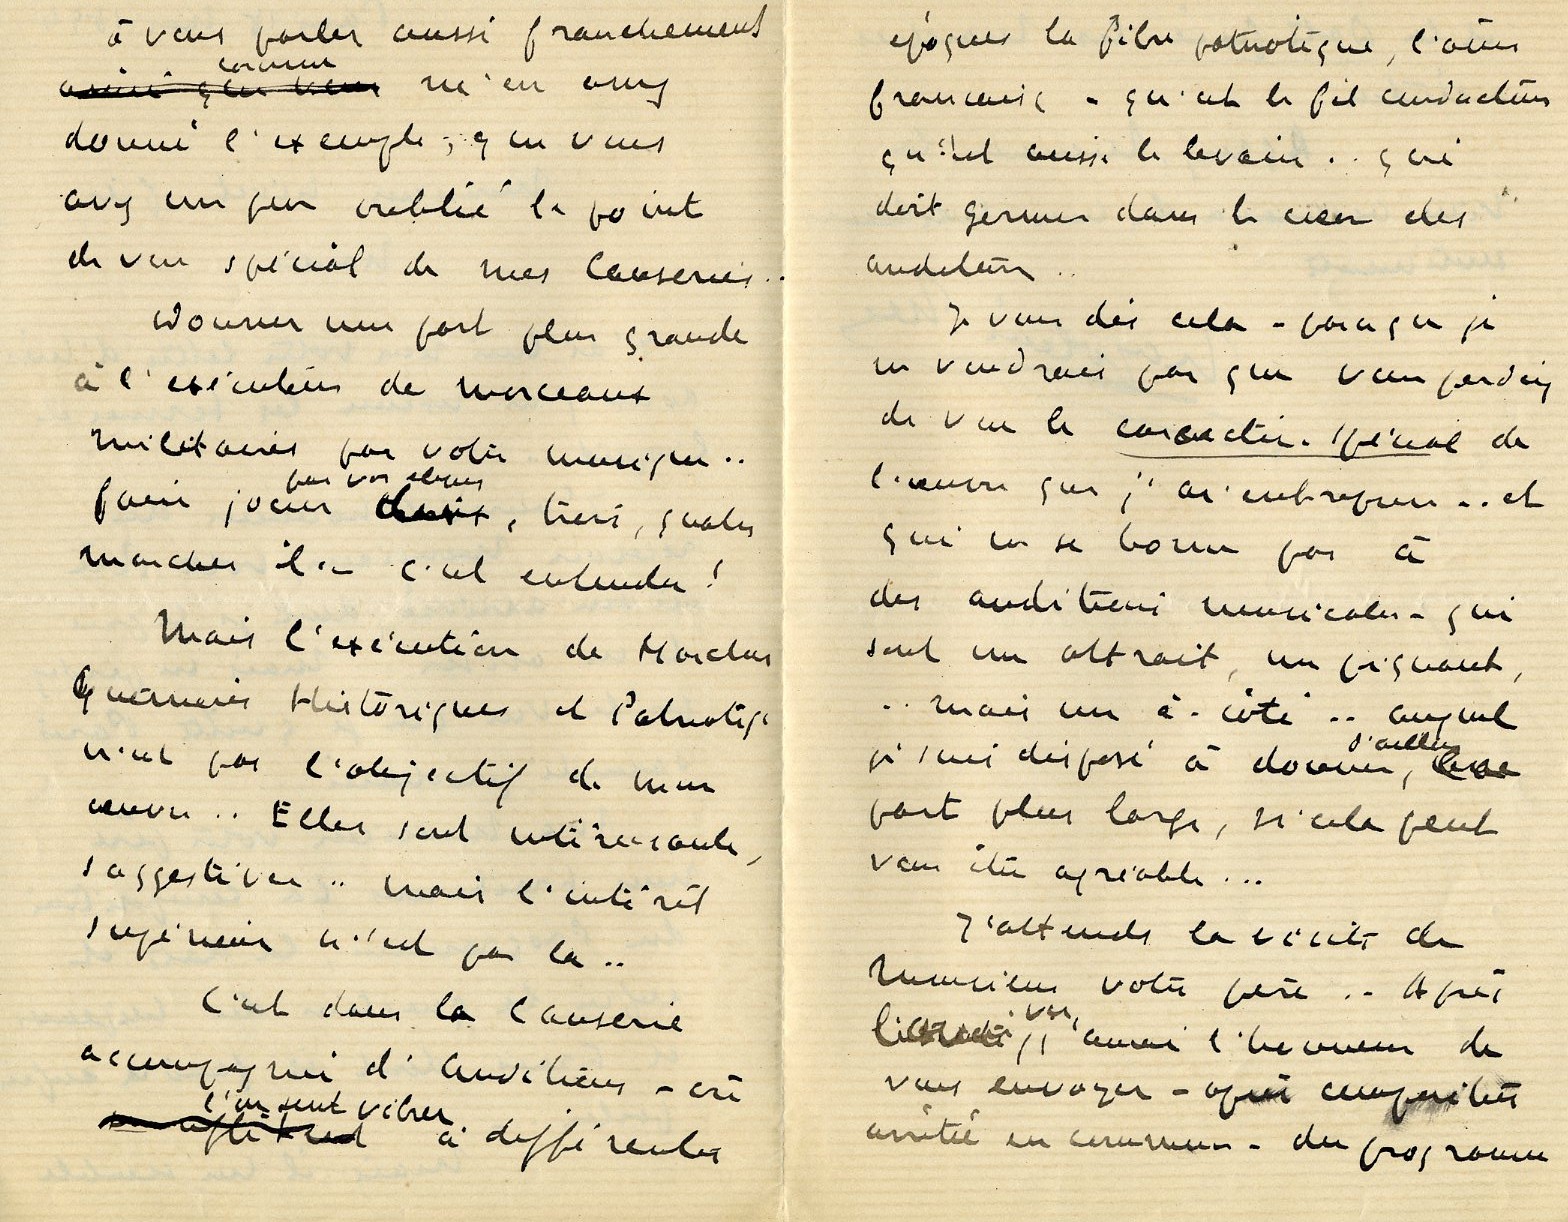 à vous parler aussi franchement
comme
m'en avez
donné l'exemple, que vous
avez un peu oublié le point
de vue spécial de mes Causeries..
Donner une part plus grande
à l'exécution de morceaux
militaires par votre musique..
par vos élèves
faire jouer deux, trois, quatre
marches .. c'est entendu !
Mais l'exécution de Marches
Guerrières Historiques et Patriotiq
n'est pas l'objectif de mon
œuvre .. Elles sont intéressantes,
suggestives .. mais l'intérêt
supérieur n'est pas là ..
C'est dans la Causerie
accompagnée d'Auditions - où
l'on sent vibrer
à différentes
époques la fibre patriotique, l'âme
française - qu'est le fil conducteur
qu'est aussi le levain .. qui
doit germer dans le cœur des
auditeurs ..
Je vous dis cela - parce que je
ne voudrais pas que vous perdiez
de vue le caractère spécial de
l'œuvre que j'ai entreprise .. et
qui ne se borne pas à
des auditions musicales - qui
sont un attrait, un piquant,
.. mais un à-côté .. auquel
d'ailleurs
je suis disposé à donner, une
part plus large, si cela peut
vous être agréable ...
J'attends la visite de
Monsieur votre père .. Après
j'aurai l'honneur de
vous envoyer - après composition
arrêtée en commun - du programme